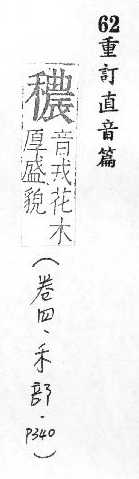 62重訂直音篇
穠
音戎花木
厚盛貌
（卷四、禾部．P340）